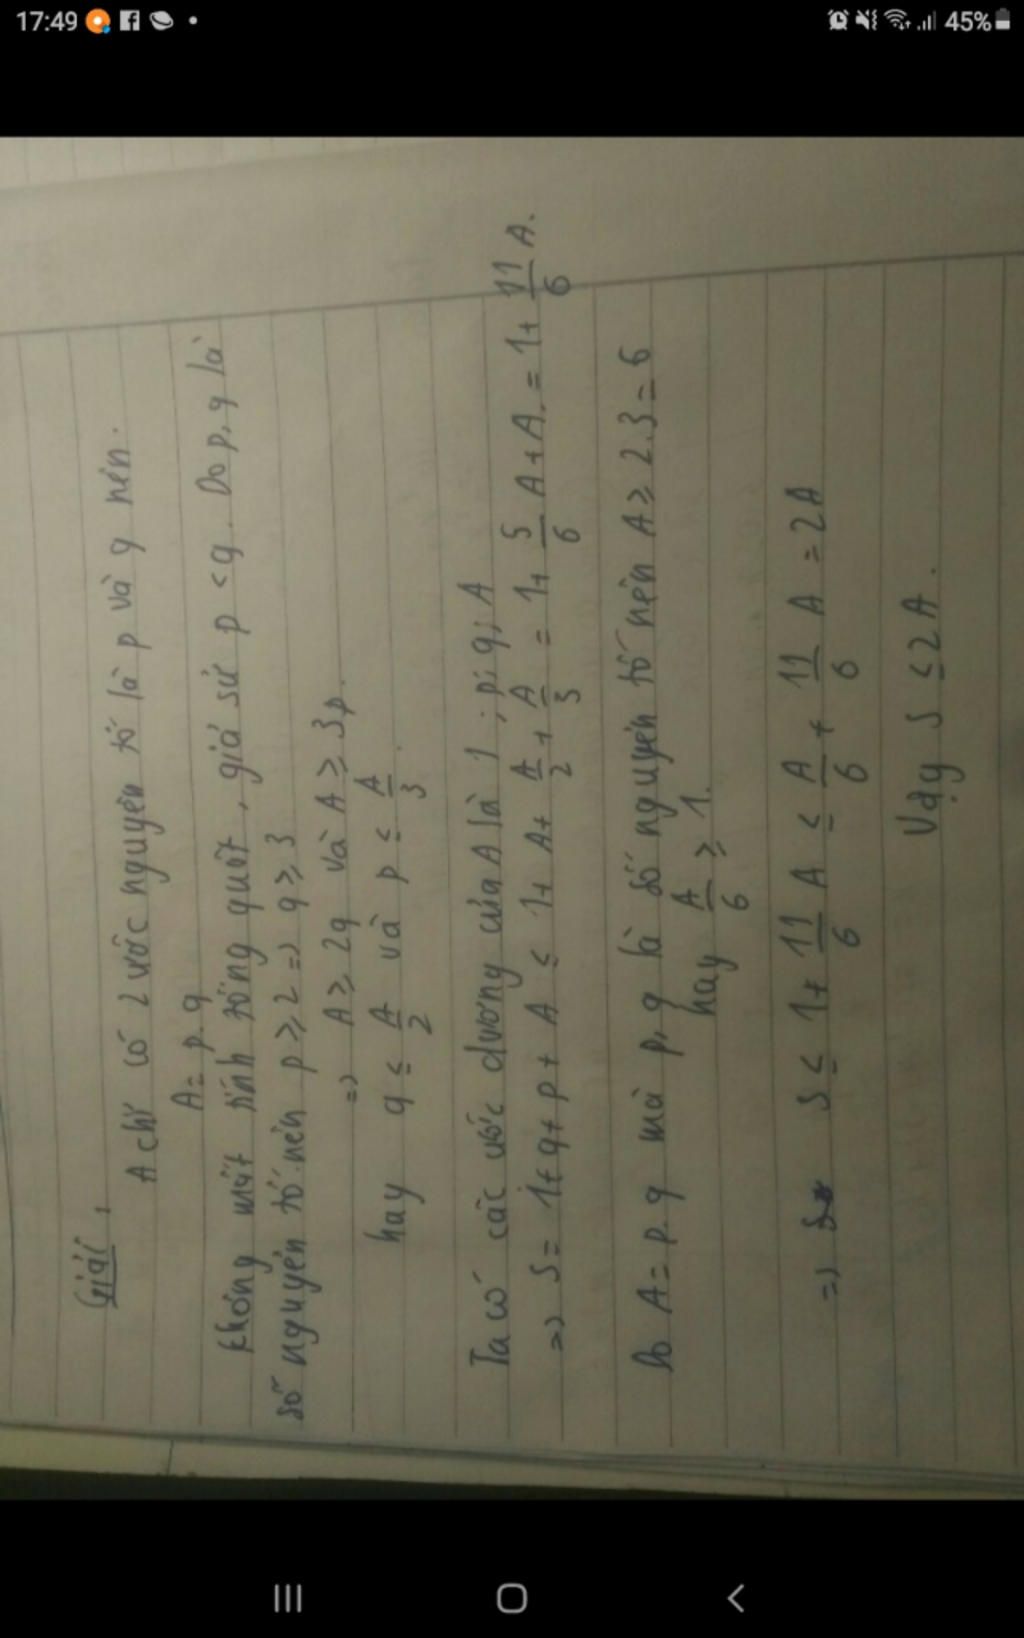 17:49
45%
Giải:
A chỉ có 2 ước nguyên tố là p và q nên.
A = p.q
Không mất tính tổng quát, giả sử p < q. Do p, q là
số nguyên tố nên p ≥ 2 => q ≥ 3
=> A ≥ 2q và A ≥ 3p.
hay q ≤ A/2 và p ≤ A/3.
Ta có các ước dương của A là 1; p; q; A
=> S = 1+q+p+A ≤ 1+A+A/2+A/3 = 1+5/6 A+A. = 1+11/6 A.
Do A = p.q mà p, q là số nguyên tố nên A ≥ 2.3 = 6
hay A/6 ≥ 1.
=> S ≤ 1+11/6 A ≤ A/6+11/6 A = 2A
Vậy S ≤ 2A.